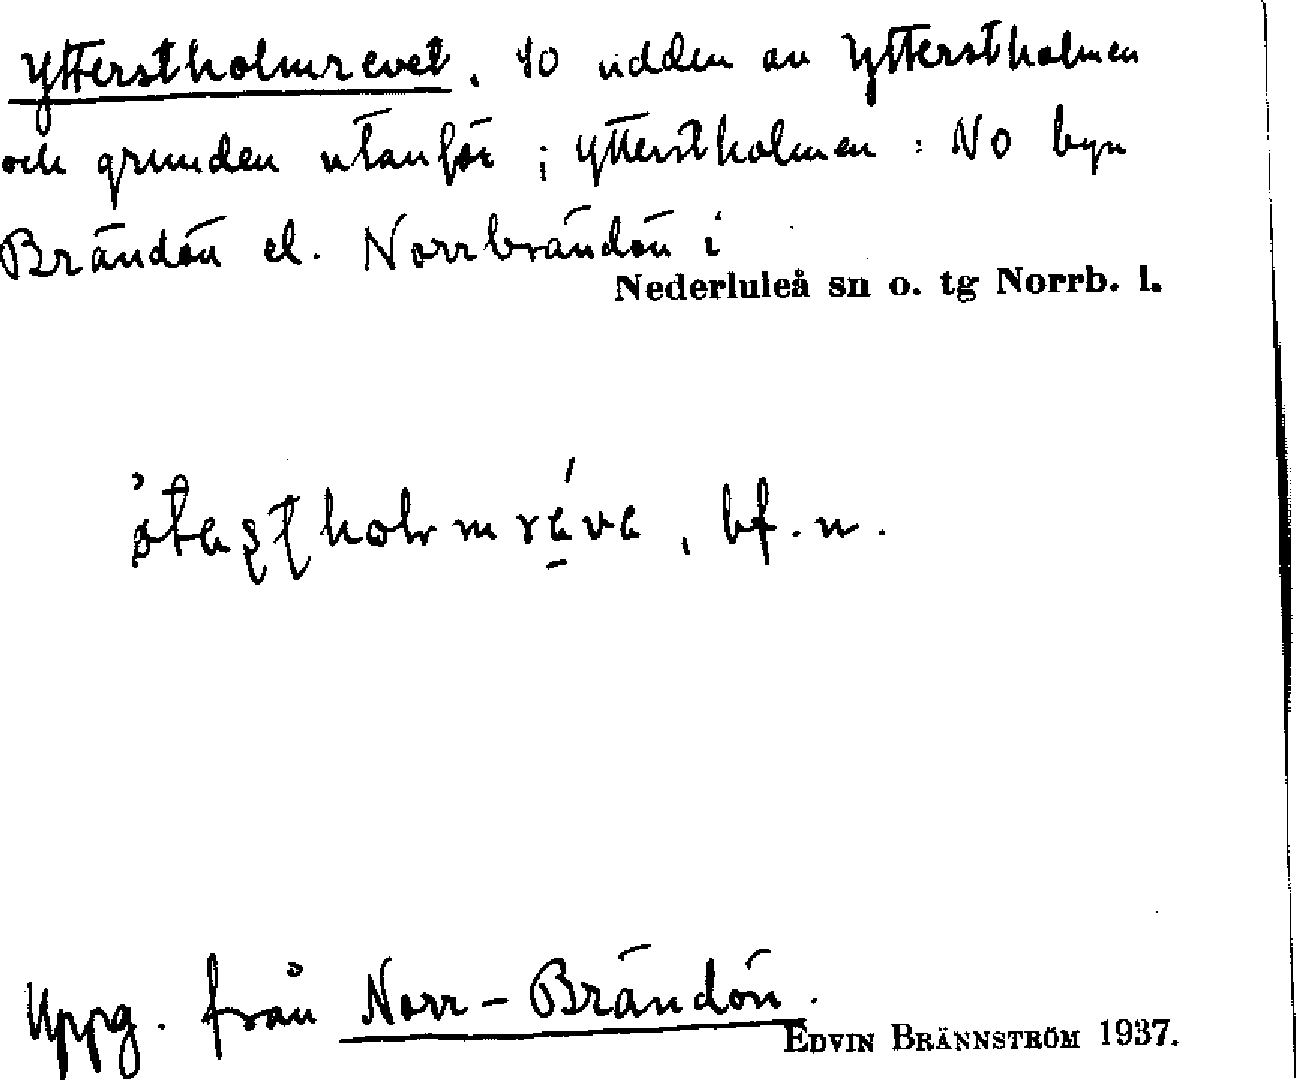 Ytterstholmrevet. SO udden av Ytterstholmen
och grunden utanför; Ytterstholmen: NO byn
Brändön el. Norrbrändön i
Nederluleå sn o. tg Norrb. l.
bf. n.
Uppg. från Norr-Brändön.
EDVIN BRÄNNSTRÖM 1937.